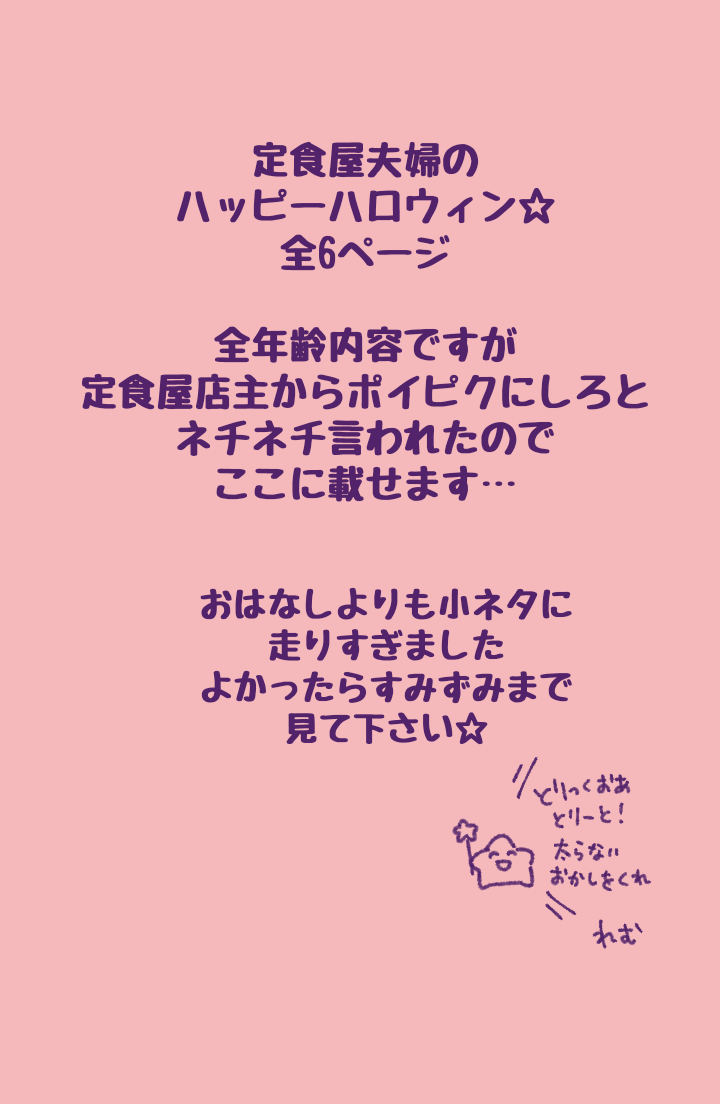 定食屋夫婦の
ハッピーハロウィン☆
全6ページ
全年齢内容ですが
定食屋店主からポイピクにしろと
ネチネチ言われたので
ここに載せます…
おはなしよりも小ネタに
走りすぎました
よかったらすみずみまで
見て下さい☆
とりっくおあ
とりーと!
太らない
おかしをくれ
れむ